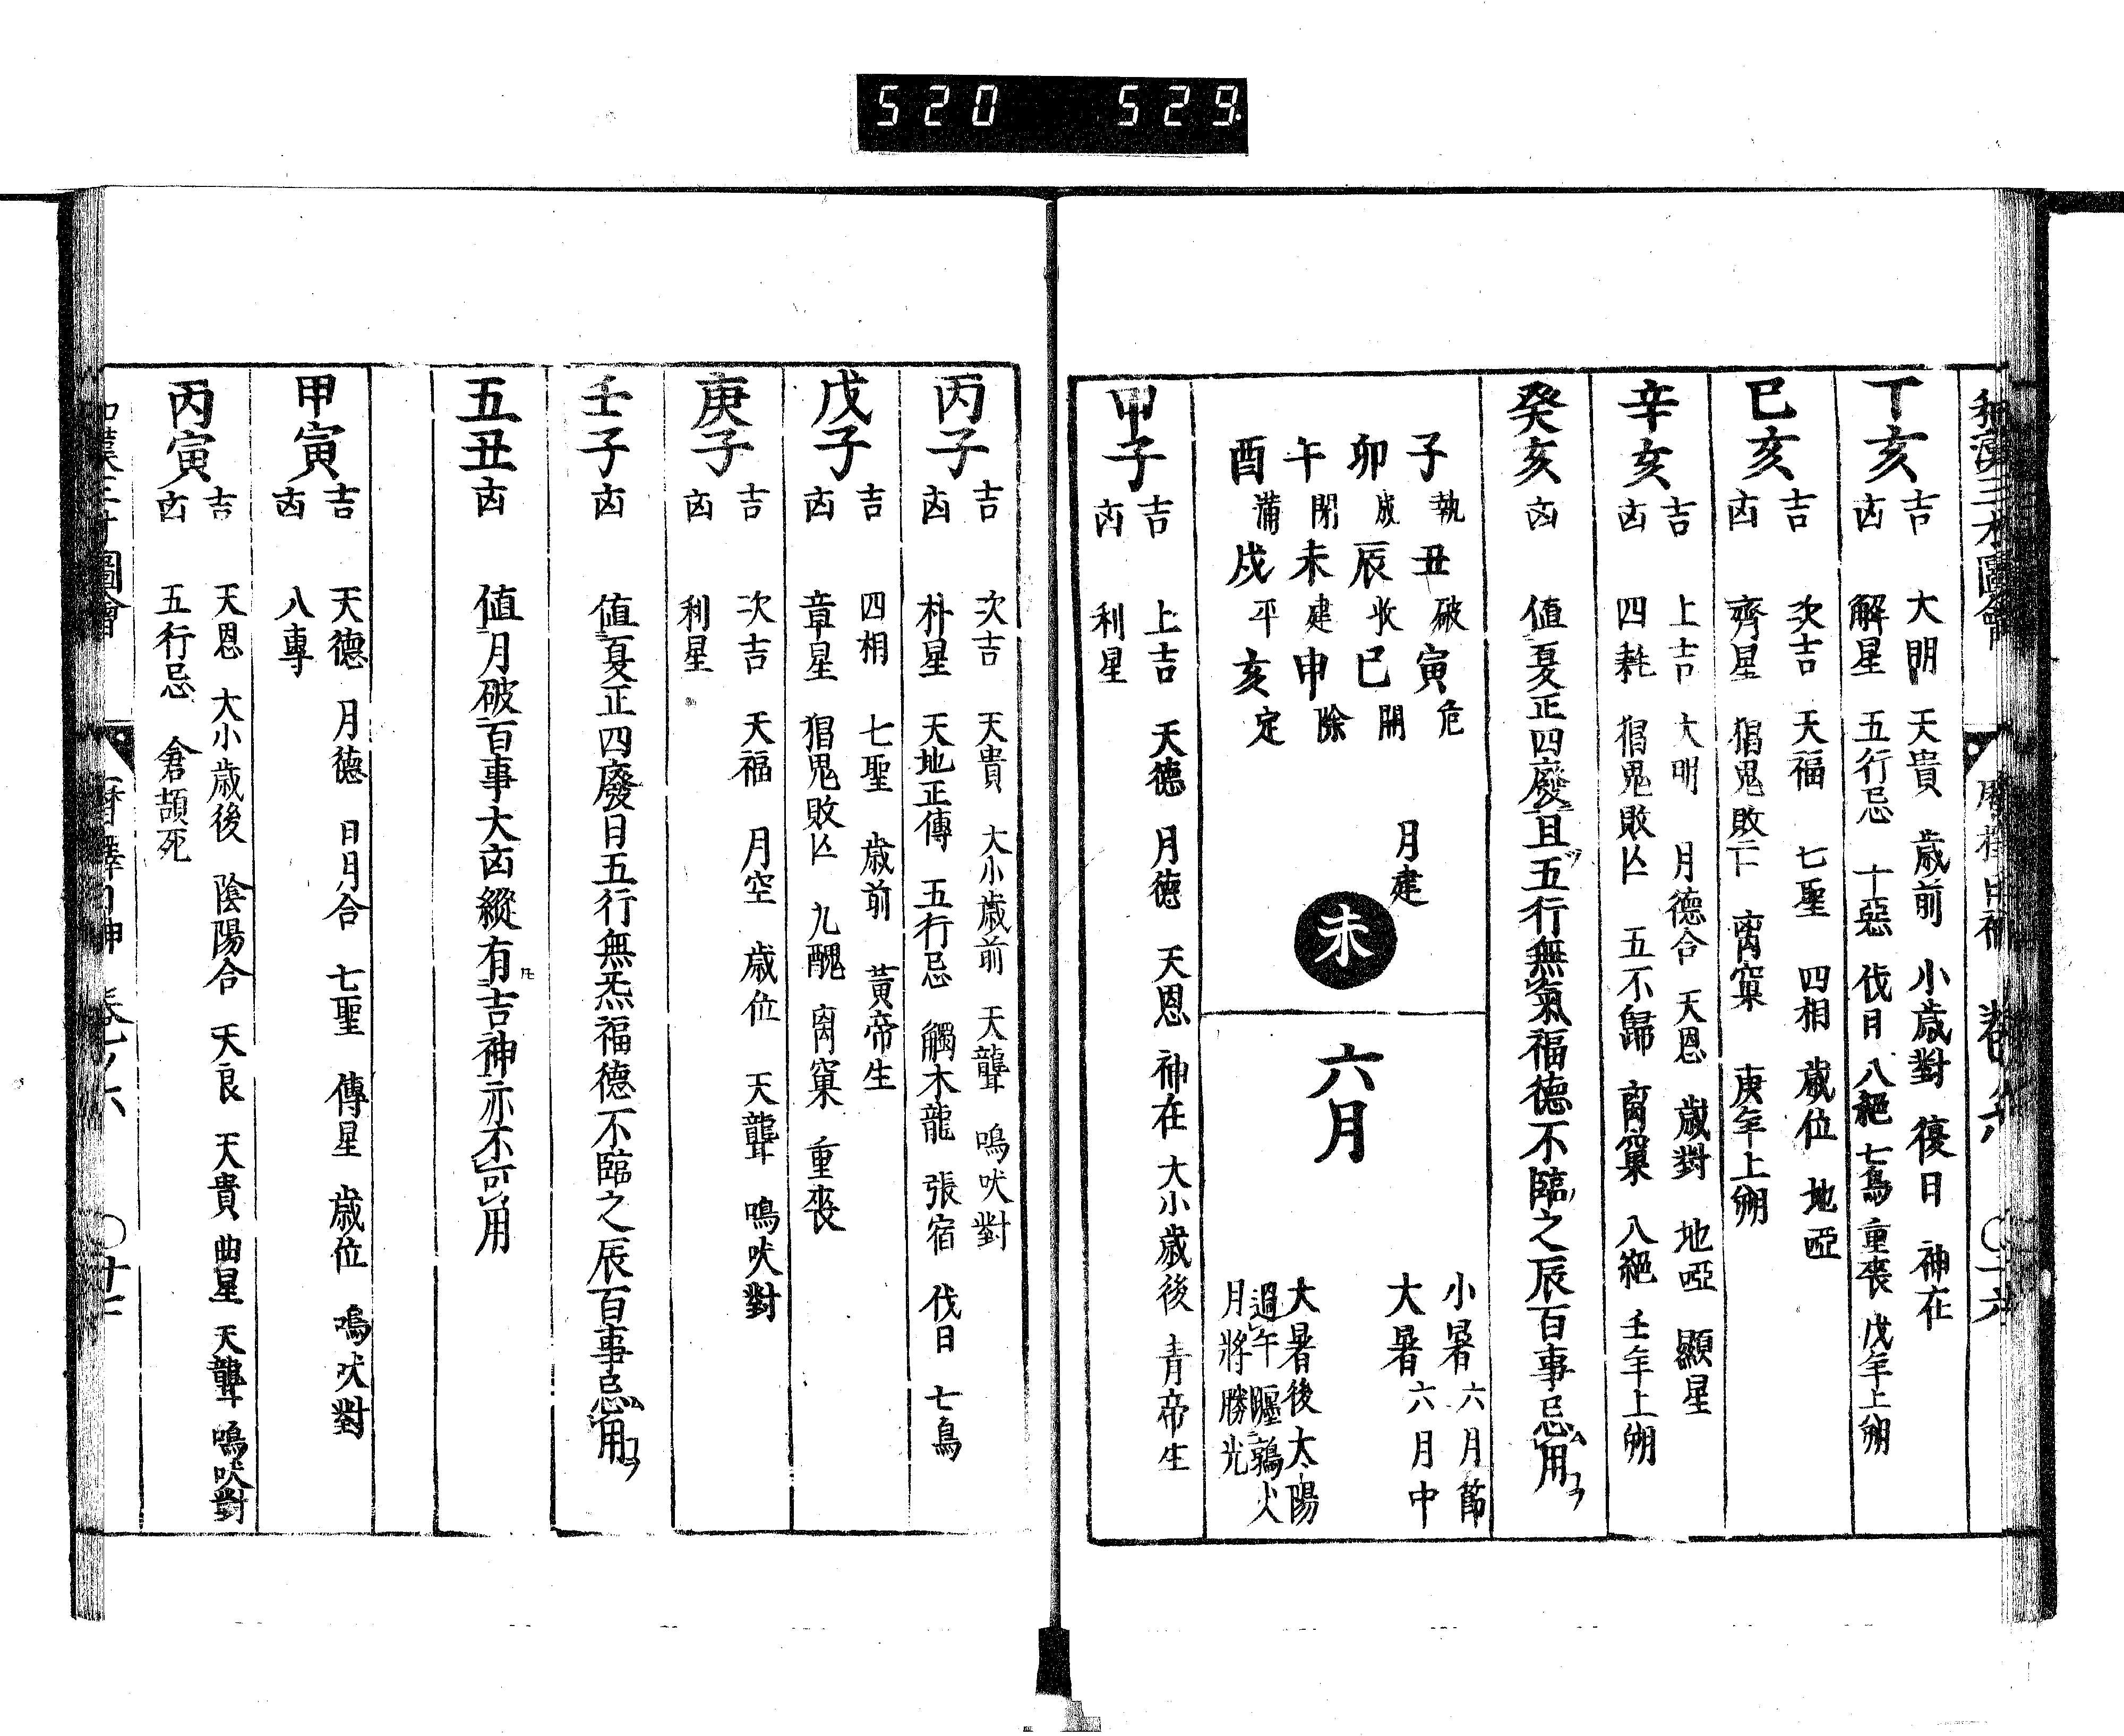 520 529
和漢三才圖會 暦擇日神 卷ノ六 〇二六
丁亥 吉 大明 天貴 歳前 小歳對 復日 神在
凶 解星 五行忌 十惡 伐日 八絕 七鳥 重喪 戊年上朔
己亥 吉 次吉 天福 七聖 四相 歳位 地啞
凶 齊星 猖鬼敗亡 离窠 庚年上朔
辛亥 吉 上吉 大明 月德合 天恩 歳對 地啞 顯星
凶 四耗 猖鬼敗亡 五不歸 离窠 八絕 壬年上朔
癸亥 凶 值夏正四廢且五行無氣福德不臨之辰百事忌用
子執 丑破 寅危
卯成 辰收 巳開
午閉 未建 申除
酉滿 戌平 亥定
月建
未
六月
小暑六月節
大暑六月中
大暑後太陽
過午躔鶉火
月將勝光
甲子 吉 上吉 天德 月德 天恩 神在 大小歳後 青帝生
凶 利星
丙子 吉 次吉 天貴 大小歳前 天聾 鳴吠對
凶 朴星 天地正傳 五行忌 觸木龍 張宿 伐日 七鳥
戊子 吉 四相 七聖 歳前 黃帝生
凶 章星 猖鬼敗亡 九醜 离窠 重喪
庚子 吉 次吉 天福 月空 歳位 天聾 鳴吠對
凶 利星
壬子 凶 值夏正四廢日五行無炁福德不臨之辰百事忌用
五丑 凶 值月破百事大凶縱有吉神亦不可用
甲寅 吉 天德 月德 日月合 七聖 傳星 歳位 鳴吠對
凶 八專
丙寅 吉 天恩 大小歳後 陰陽合 天良 天貴 曲星 天聾 鳴吠對
凶 五行忌 倉頡死
和漢三才圖會 暦擇日神 卷ノ六 〇廿七